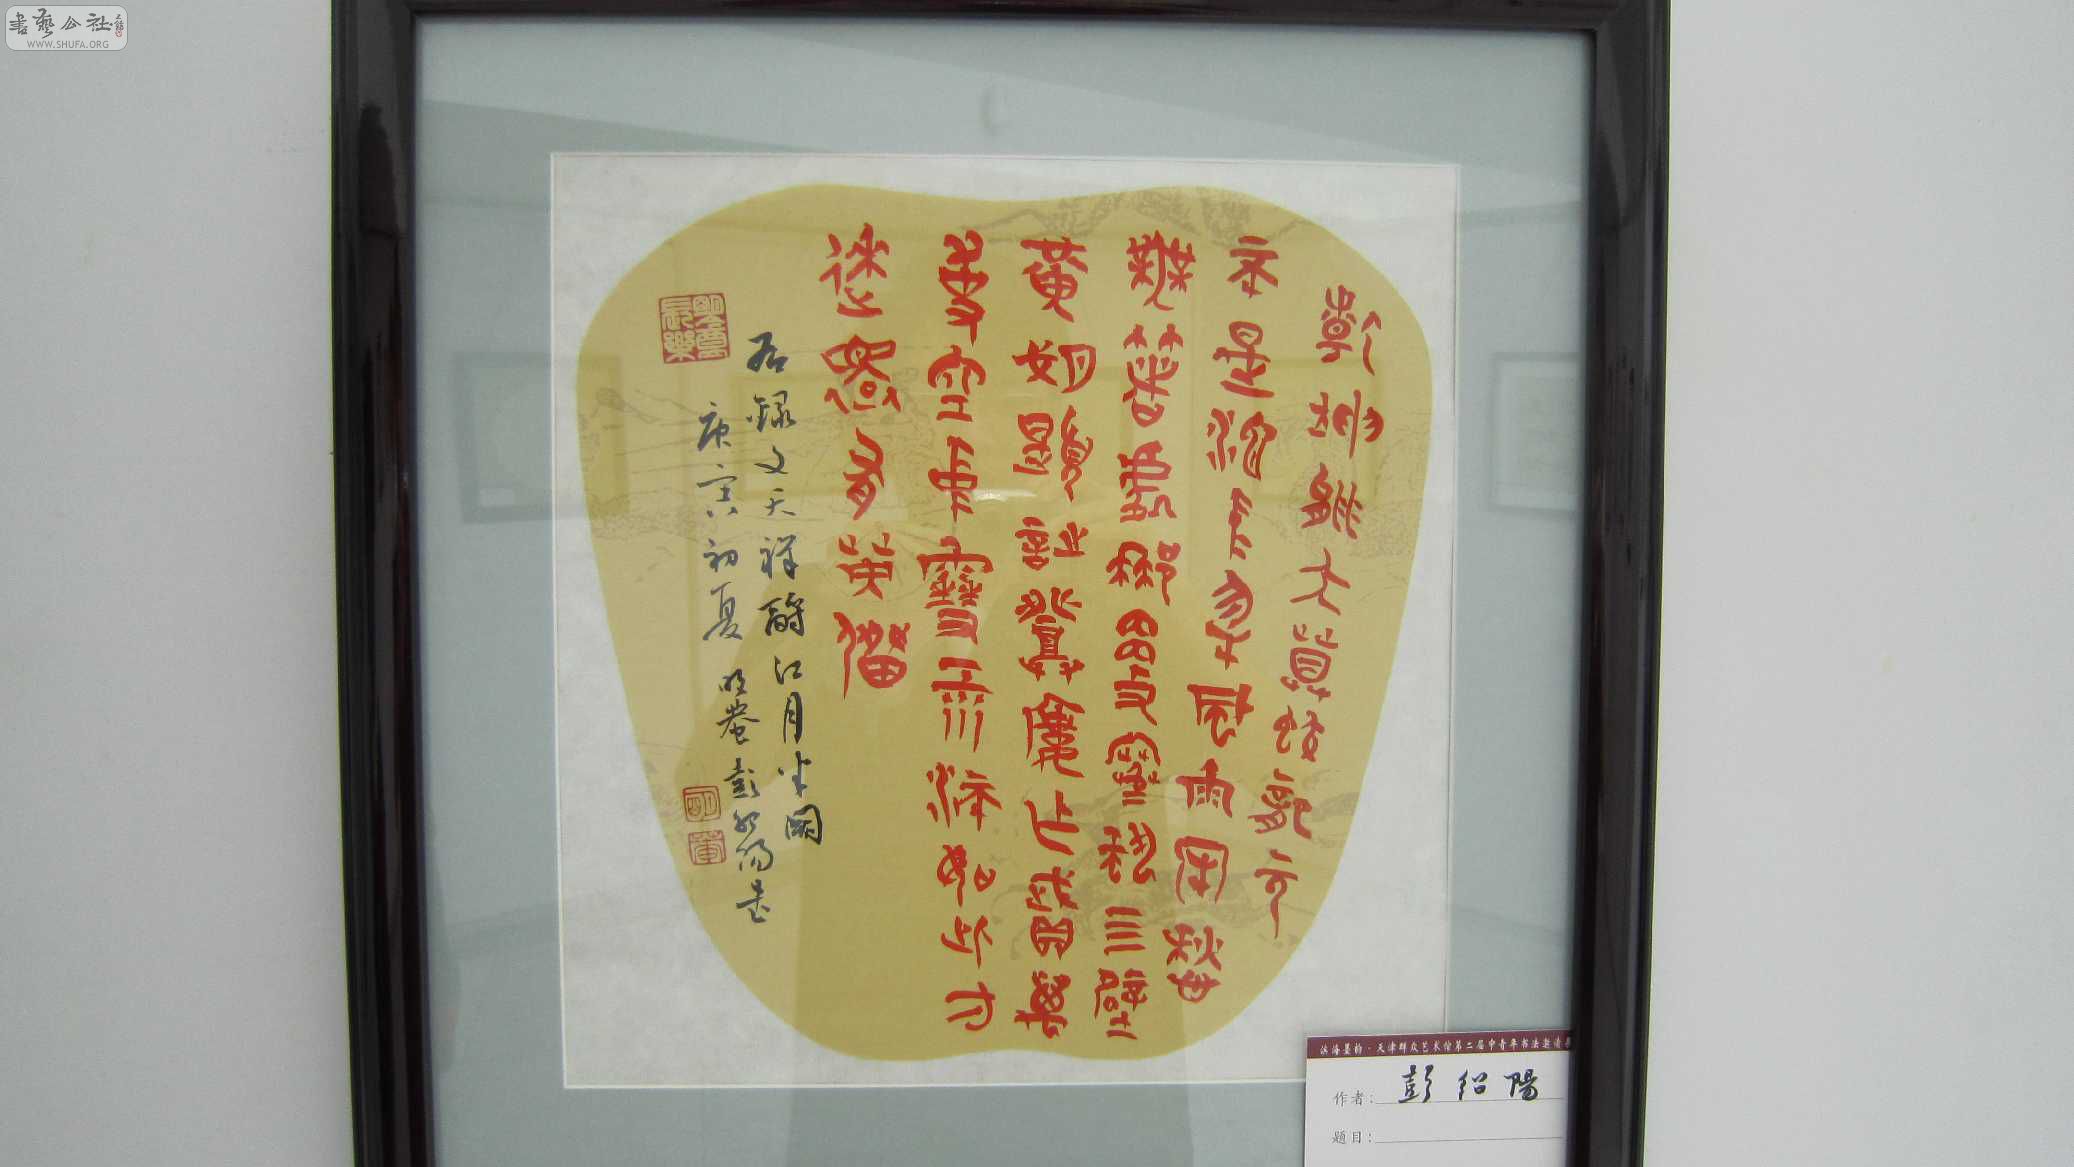 書藝公社
WWW.SHUFA.ORG
乾坤能大算蛟龍元
不是池中物風雨牢愁
無著處那更寒蟲四壁
橫槊題詩登樓作賦萬
事空中雪江流如此方
來還有英傑
右錄文天祥酹江月半闋
庚寅初夏明菴彭紹陽書
滨海墨韵·天津群众艺术馆第二届中青年书法邀请展
作者:彭紹陽
题目: